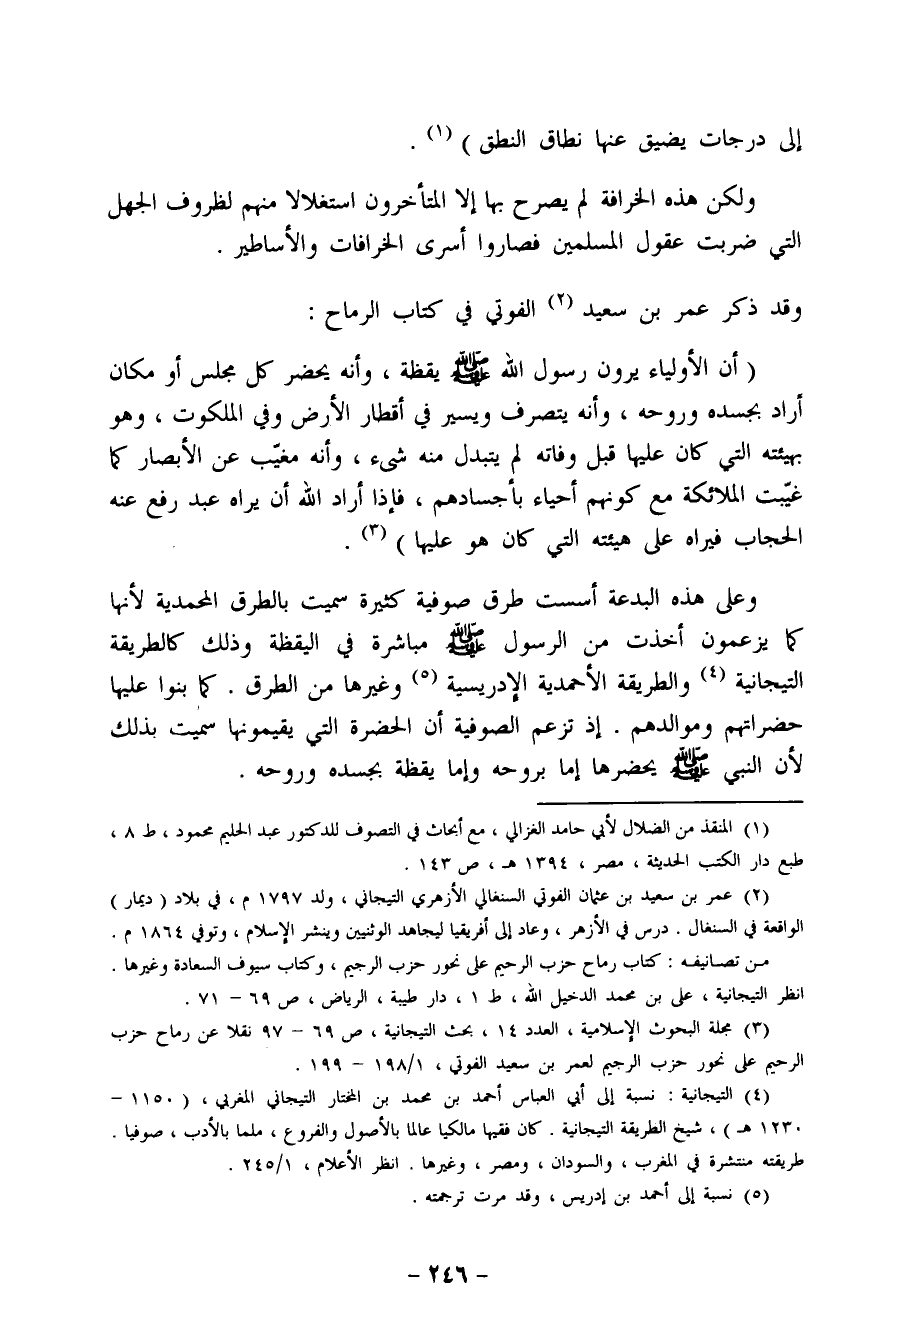 إلى درجات يضيق عنها نطاق النطق ) (١) .
ولكن هذه الخرافة لم يصرح بها إلا المتأخرون استغلالا منهم لظروف الجهل
التي ضربت عقول المسلمين فصاروا أسرى الخرافات والأساطير .
وقد ذكر عمر بن سعيد (٢) الفوتي في كتاب الرماح :
( أن الأولياء يرون رسول الله ﷺ يقظة ، وأنه يحضر كل مجلس أو مكان
أراد بجسده وروحه ، وأنه يتصرف ويسير في أقطار الأرض وفي الملكوت ، وهو
بهيئته التي كان عليها قبل وفاته لم يتبدل منه شىء ، وأنه مغيّب عن الأبصار كما
غيّبت الملائكة مع كونهم أحياء بأجسادهم ، فإذا أراد الله أن يراه عبد رفع عنه
الحجاب فيراه على هيئته التي كان هو عليها ) (٣) .
وعلى هذه البدعة أسست طرق صوفية كثيرة سميت بالطرق المحمدية لأنها
كما يزعمون أخذت من الرسول ﷺ مباشرة في اليقظة وذلك كالطريقة
التيجانية (٤) والطريقة الأحمدية الإدريسية (٥) وغيرها من الطرق . كما بنوا عليها
حضراتهم وموالدهم . إذ تزعم الصوفية أن الحضرة التي يقيمونها سميت بذلك
لأن النبي ﷺ يحضرها إما بروحه وإما يقظة بجسده وروحه .
(١) المنقذ من الضلال لأبي حامد الغزالي ، مع أبحاث في التصوف للدكتور عبد الحليم محمود ، ط ٨ ،
طبع دار الكتب الحديثة ، مصر ، ١٣٩٤ هـ ، ص ١٤٣ .
(٢) عمر بن سعيد بن عثمان الفوتي السنغالي الأزهري التيجاني ، ولد ١٧٩٧ م ، في بلاد ( ديمار )
الواقعة في السنغال . درس في الأزهر ، وعاد إلى أفريقيا ليجاهد الوثنيين وينشر الإسلام ، وتوفي ١٨٦٤ م .
من تصانيفه : كتاب رماح حزب الرحيم على نحور حزب الرجيم ، وكتاب سيوف السعادة وغيرها .
انظر التيجانية ، على بن محمد الدخيل الله ، ط ١ ، دار طيبة ، الرياض ، ص ٦٩ – ٧١ .
(٣) مجلة البحوث الإسلامية ، العدد ١٤ ، بحث التيجانية ، ص ٦٩ – ٩٧ نقلا عن رماح حزب
الرحيم على نحور حزب الرجيم لعمر بن سعيد الفوتي ، ١٩٨/١ – ١٩٩ .
(٤) التيجانية : نسبة إلى أبي العباس أحمد بن محمد بن المختار التيجاني المغربي ، ( ١١٥٠ –
١٢٣٠ هـ ) ، شيخ الطريقة التيجانية . كان فقيها مالكيا عالما بالأصول والفروع ، ملما بالأدب ، صوفيا .
طريقته منتشرة في المغرب ، والسودان ، ومصر ، وغيرها . انظر الأعلام ، ٢٤٥/١ .
(٥) نسبة إلى أحمد بن إدريس ، وقد مرت ترجمته .
– ٢٤٦ –